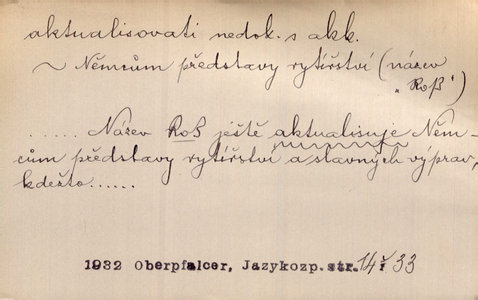 aktualisovati nedok. s akk.
~ Němcům představy rytířství (název
„Roß")
...... Název Roß ještě aktualisuje Něm-
cům představy rytířství a slavných výprav,
kdežto......
1932 Oberpfalcer, Jazykozp. str. 14 ř 33